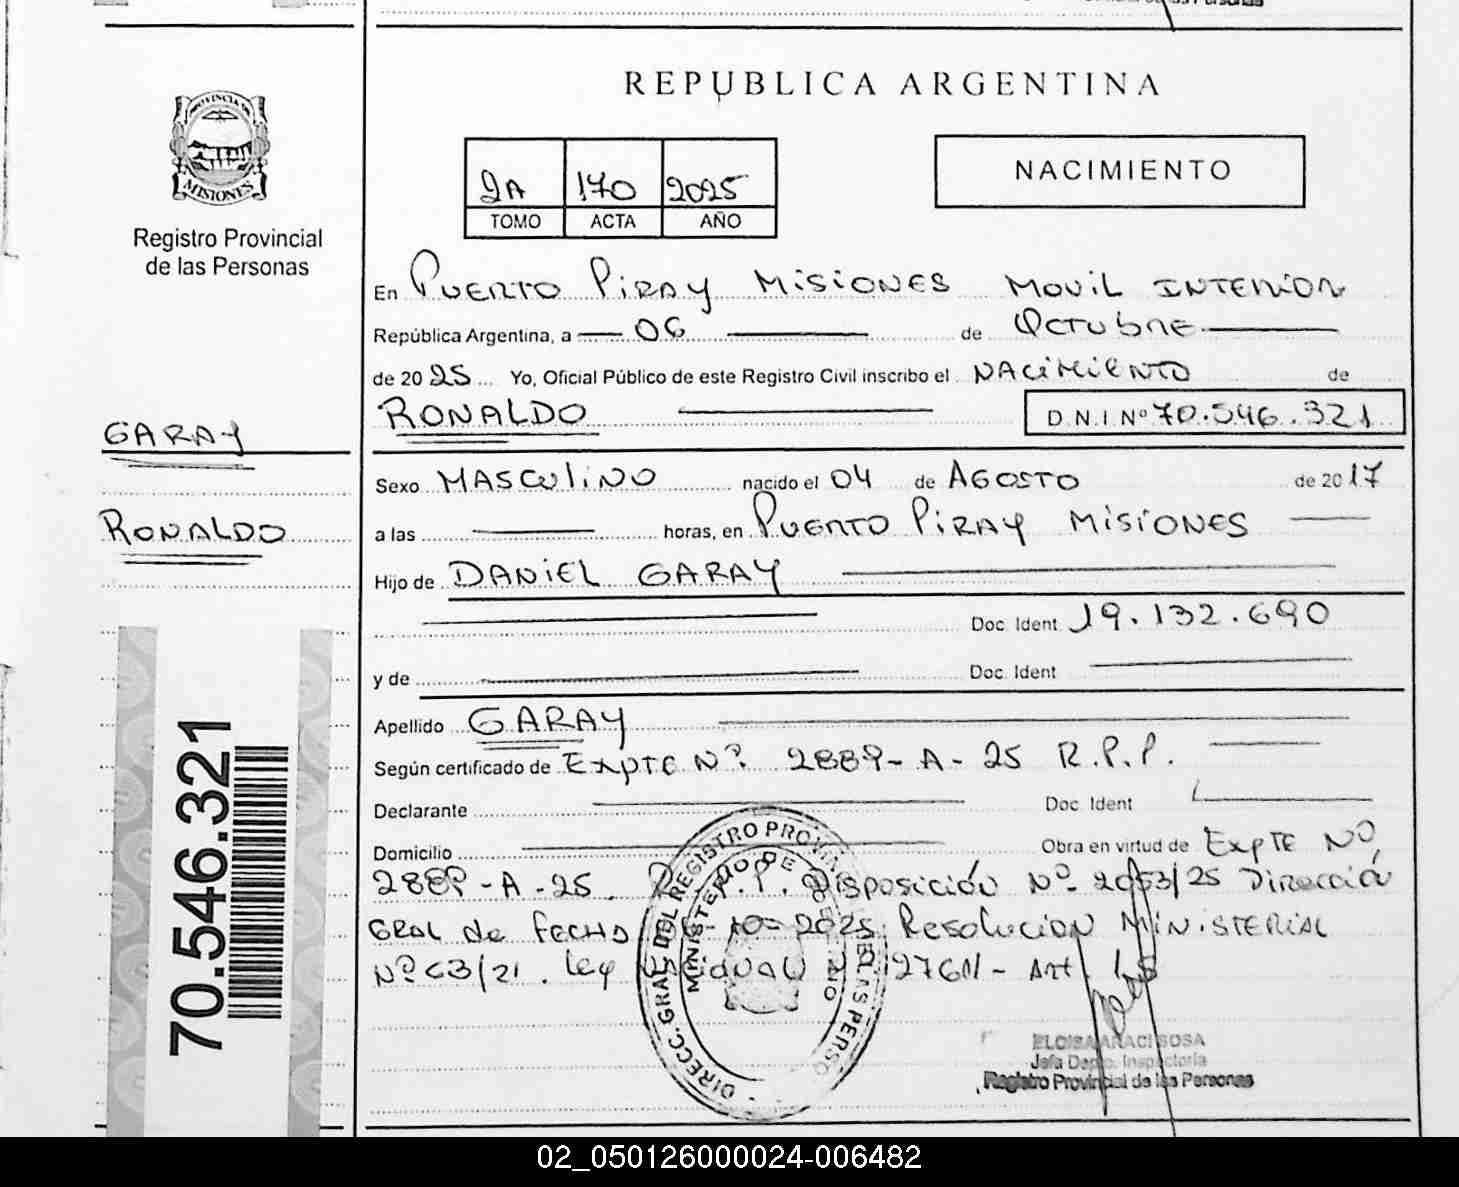 REPUBLICA ARGENTINA
PROVINCIA DE
MISIONES
Registro Provincial
de las Personas
2A 170 2025
TOMO ACTA AÑO
NACIMIENTO
En PUERTO PIRAY MISIONES MOVIL INTERIOR
República Argentina, a 06 de Octubre
de 2025 Yo, Oficial Público de este Registro Civil inscribo el NACIMIENTO de
RONALDO D.N.I Nº 70.546.321
GARAY
RONALDO
Sexo MASCULINO nacido el 04 de AGOSTO de 2017
a las horas, en PUERTO PIRAY MISIONES
Hijo de DANIEL GARAY
Doc. Ident. 19.132.690
y de Doc. Ident
Apellido GARAY
Según certificado de EXPTE Nº. 2889-A-25 R.P.P.
Declarante Doc. Ident
Domicilio Obra en virtud de EXPTE Nº,
2889-A-25 R.P.P. Disposición Nº 2053/25 Dirección
GRAL de FECHA 10-2025 Resolución MINISTERIAL
Nº 63/21. Ley 27611 - Art.
70.546.321
DIRECC. GRAL DEL REGISTRO PROVINCIAL DE LAS PERSO
MINISTERIO DE
ELOISA ARACI SOSA
Jefa Depto. Inspectoria
Registro Provincial de las Personas
02_050126000024-006482